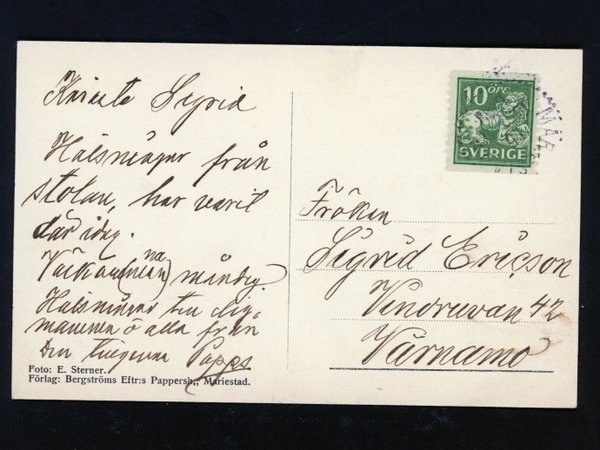 Käraste Sigrid
Hälsningar från
stolan, har varit
där idag.
måndag.
Hälsningar till dig,
mamma o alla från
Din tillgivna Pappa
Foto: E. Sterner.
Förlag: Bergströms Eftr:s Pappersh., Mariestad.
10 öre
SVERIGE
Fröken
Sigrid Ericson
Vindruvan 42
Värnamo